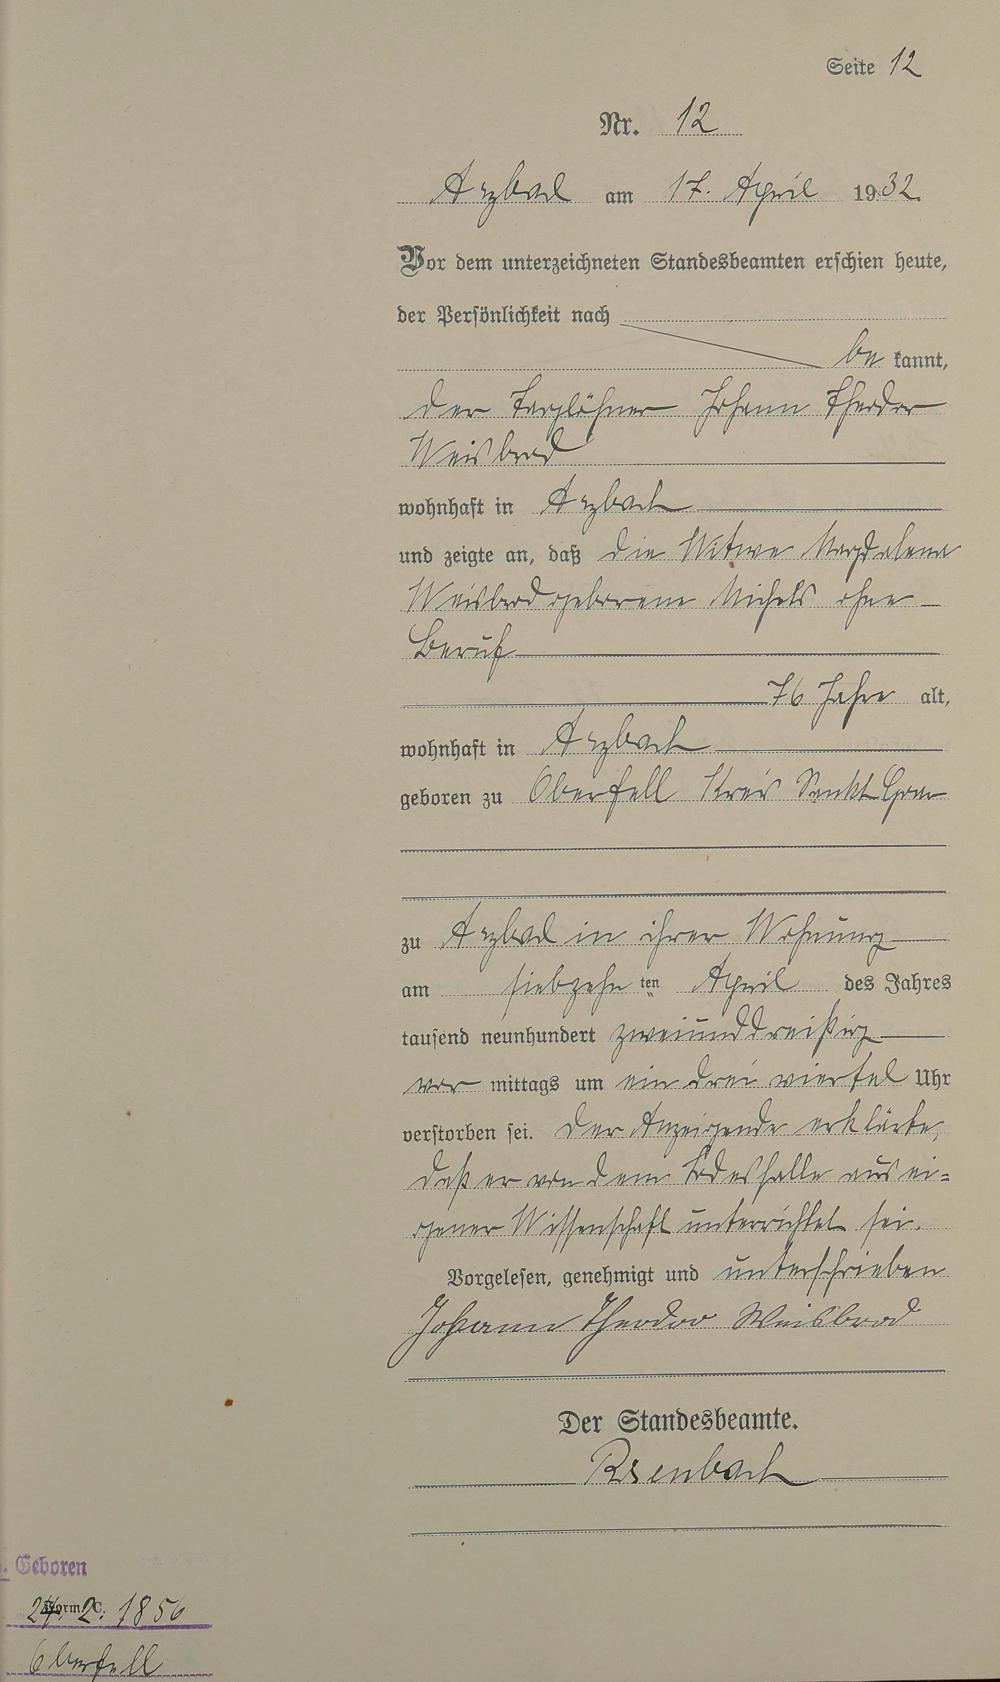 Seite 12
Nr. 12
Arzbach am 17. April 1932.
Vor dem unterzeichneten Standesbeamten erschien heute,
der Persönlichkeit nach
be kannt,
der Taglöhner Johann Theodor
Weisbrod
wohnhaft in Arzbach
und zeigte an, daß die Witwe Magdalena
Weisbrod geborene Michels ohne
Beruf
76 Jahre alt,
wohnhaft in Arzbach
geboren zu Oberfell Kreis Sankt Goar
zu Arzbach in ihrer Wohnung
am siebzehnten April des Jahres
tausend neunhundert zweiunddreißig
vor mittags um ein drei viertel Uhr
verstorben sei. Der Anzeigende erklärte,
daß er von dem Todesfalle aus ei-
gener Wissenschaft unterrichtet sei.
Vorgelesen, genehmigt und unterschrieben
Johann Theodor Weisbrod
Der Standesbeamte.
Geboren
Form. C.
2. 1856
Oberfell